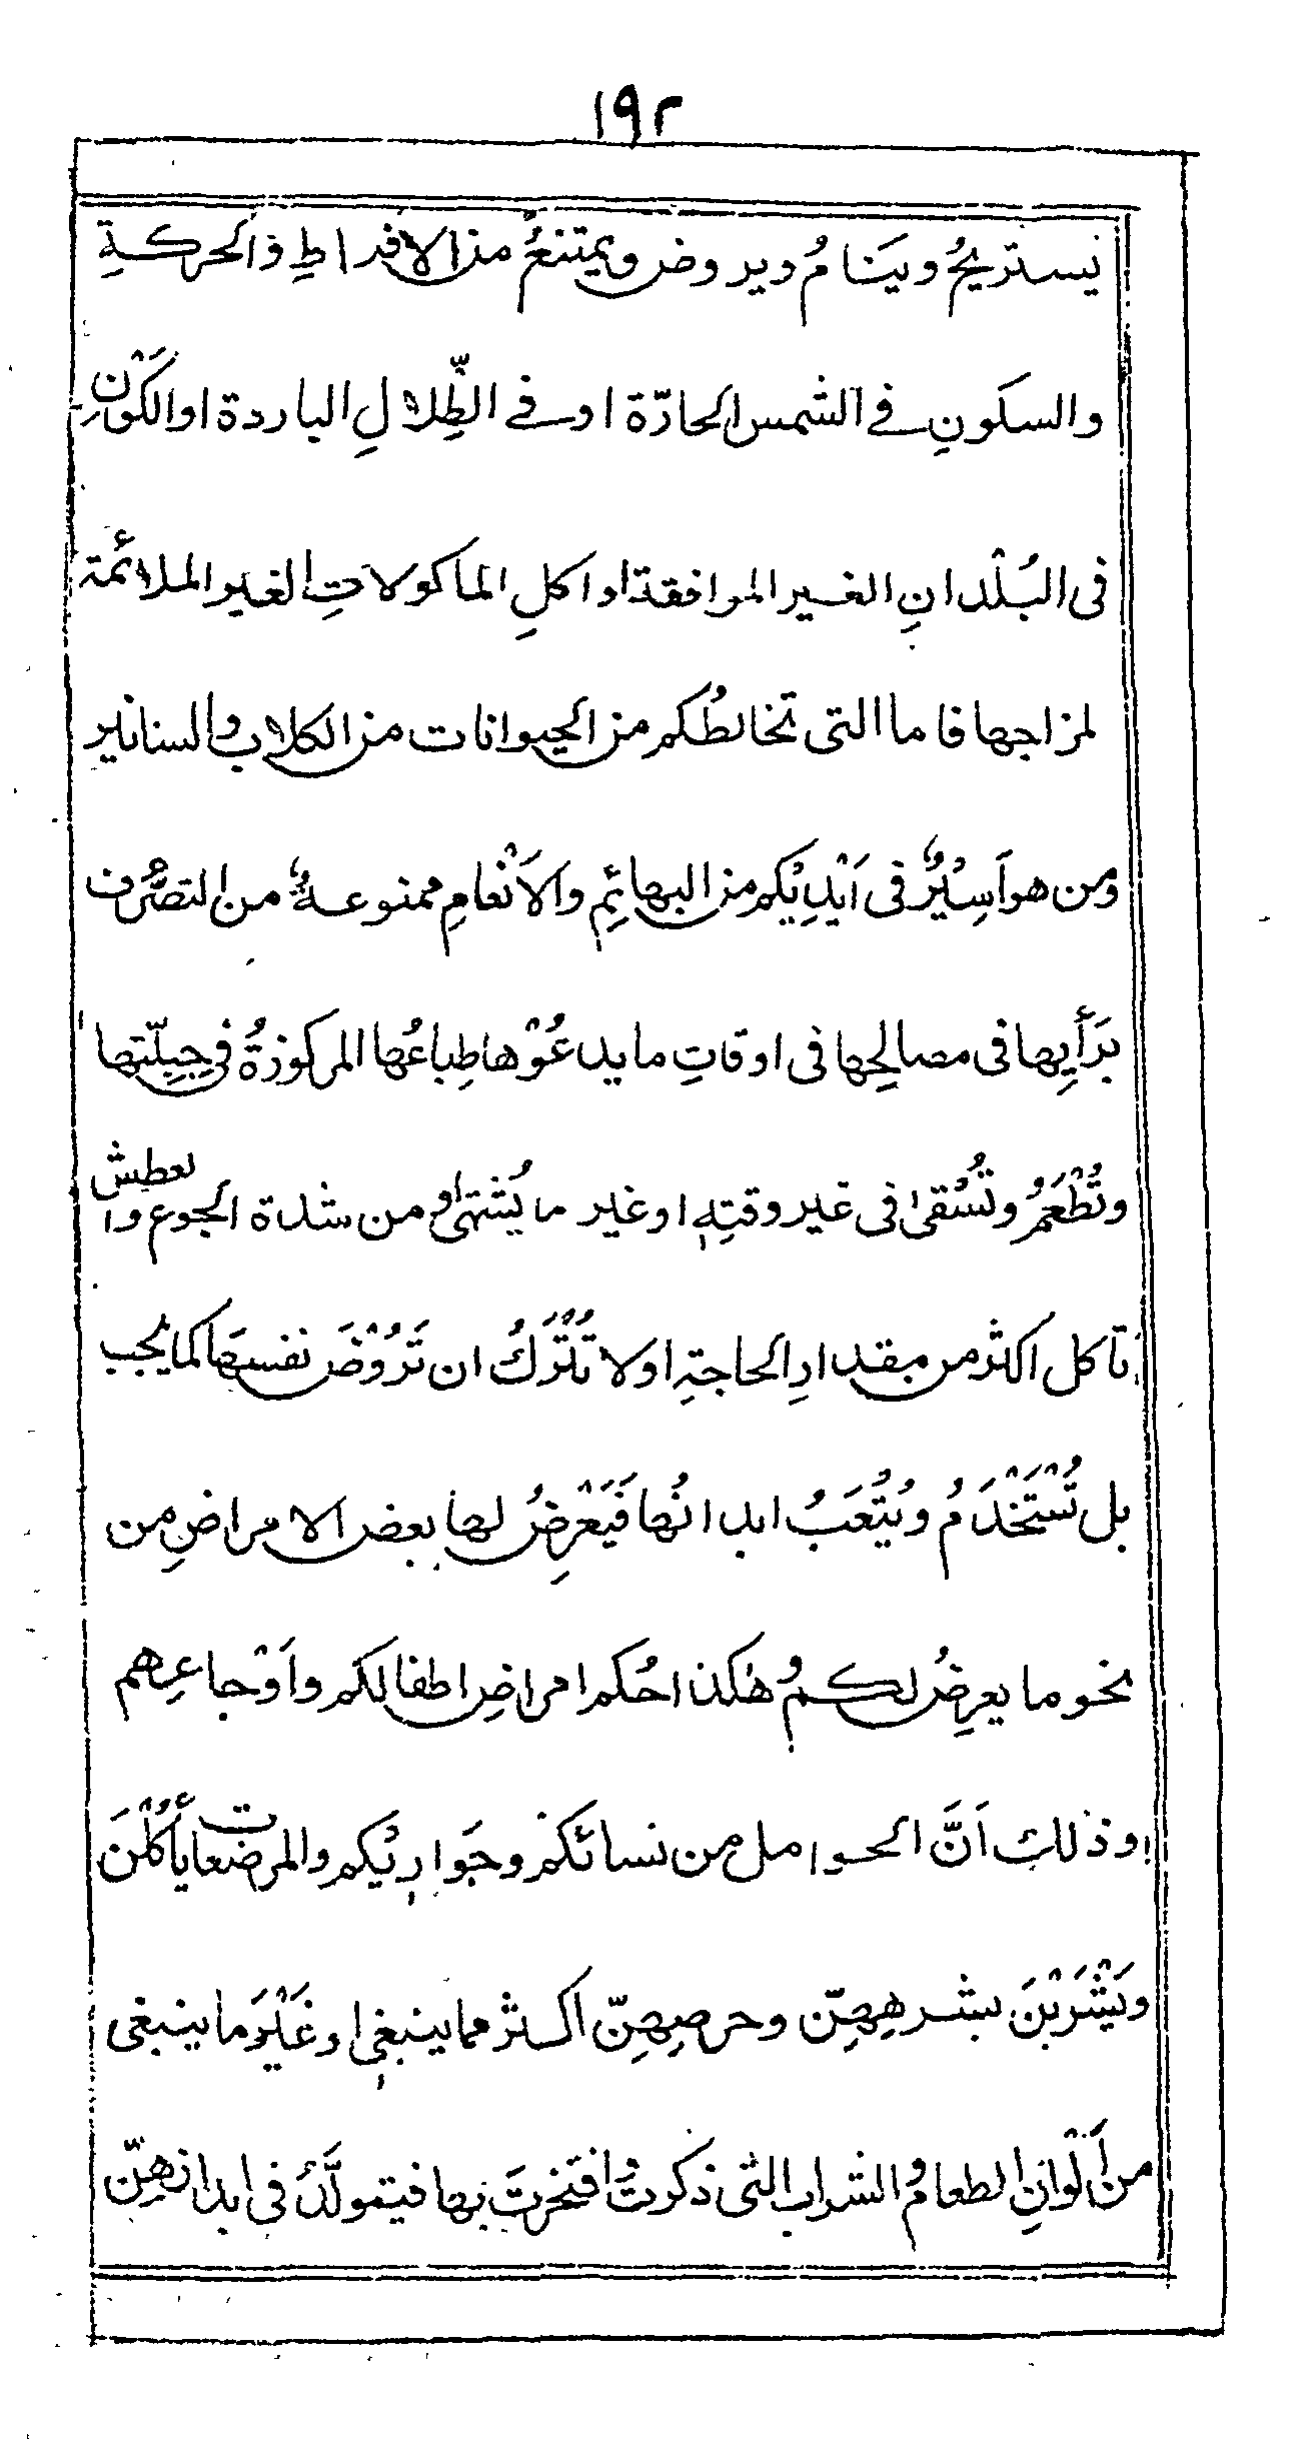 ١٩٢
يستريحُ وينَامُ ويروض ويمتنعُ من الافراطِ فى الحركةِ
والسكونِ فى الشمس الحارّة او فى الظِّلالِ الباردة او الكَوْنِ
فى البُلْدانِ الغير الموافقة او اكلِ الماكولاتِ الغير الملائمة
لمزاجها فاما التى تخالطُكم من الحيوانات من الكلاب والسنانير
ومن هو اَسِيْرٌ فى اَيْدِيْكم من البهائِمِ والاَنْعامِ ممنوعةٌ من التصرُّف
برَأيِها فى مصالحِها فى اوقاتِ ما يدعُوْها طِباعُها المركوزةُ فى جِبِلّتها
وتُطْعَمُ وتُسْقىٰ فى غير وقتِهٖ او غير ما يُشتهىٰ او من شدة الجوع والعطش
تاكل اكثر من مقدارِ الحاجةِ اولا تُتْرَكُ ان تَرُوْضَ نفسهَا كما يجب
بل تُسْتَخْدَمُ ويُتْعَبُ ابدانُها فَيَعْرِضُ لها بعض الامراضِ من
نحو ما يعرِضُ لكمُ وهٰكذا حُكم امراضِ اطفالكم واَوْجاعِهم
وذلك اَنَّ الحوامل من نسائكم وجَوارِيْكم والمرضعات يأْكُلْنَ
ويَشْرَبْنَ بشرهِهِنّ وحرصِهِنّ اكثر مما ينبغى او غَيْرَ ما ينبغى
من اَلْوانِ الطعامِ والشراب التى ذكرتَ وافتخرتَ بها فيتولَّدُ فى ابدانهِنّ